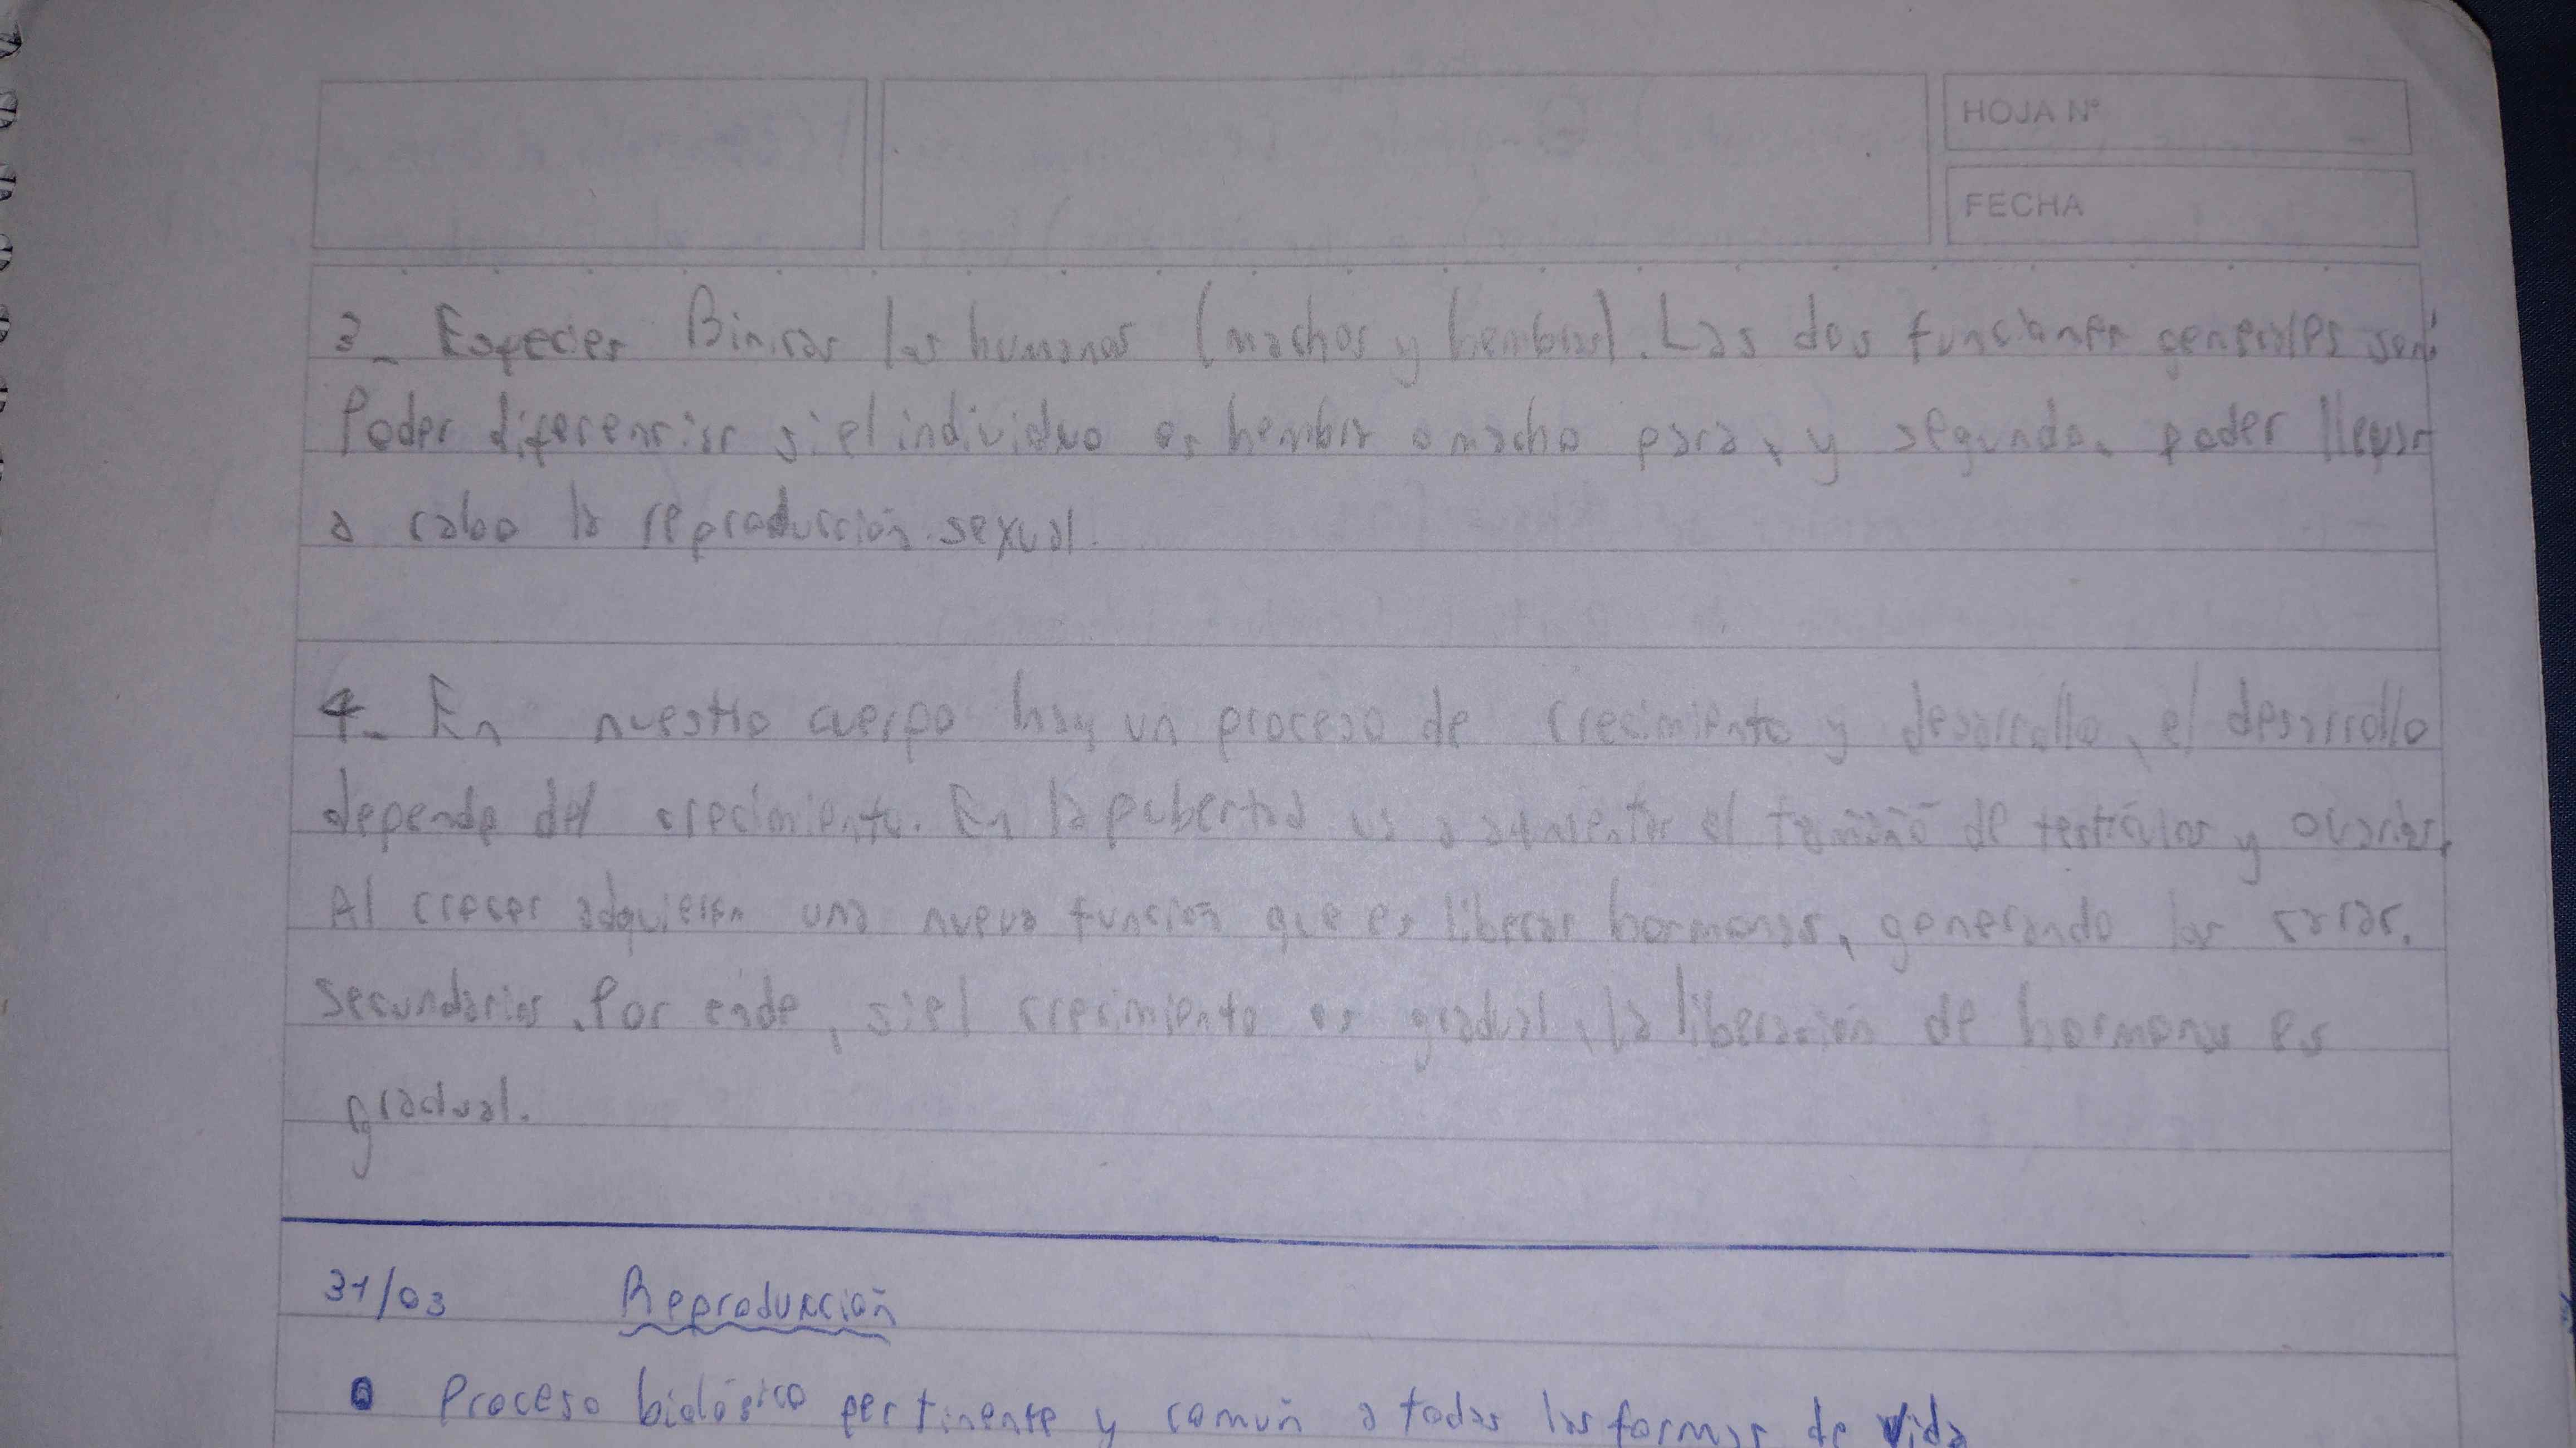 HOJA Nº
FECHA
3_ Especies Binarias los humanos (machos y hembras). Las dos funciones generales son:
Poder diferenciar si el individuo es hembra o macho para, y segundo, poder llevar
a cabo la reproducción sexual.
4_ En nuestro cuerpo hay un proceso de crecimiento y desarrollo, el desarrollo
depende del crecimiento. En la pubertad va a aumentar el tamaño de testículos y ovarios.
Al crecer adquieren una nueva función que es liberar hormonas, generando las carac.
Secundarias. Por ende, si el crecimiento es gradual, la liberación de hormonas es
gradual.
31/03 Reproducción
Proceso biológico pertinente y común a todas las formas de vida